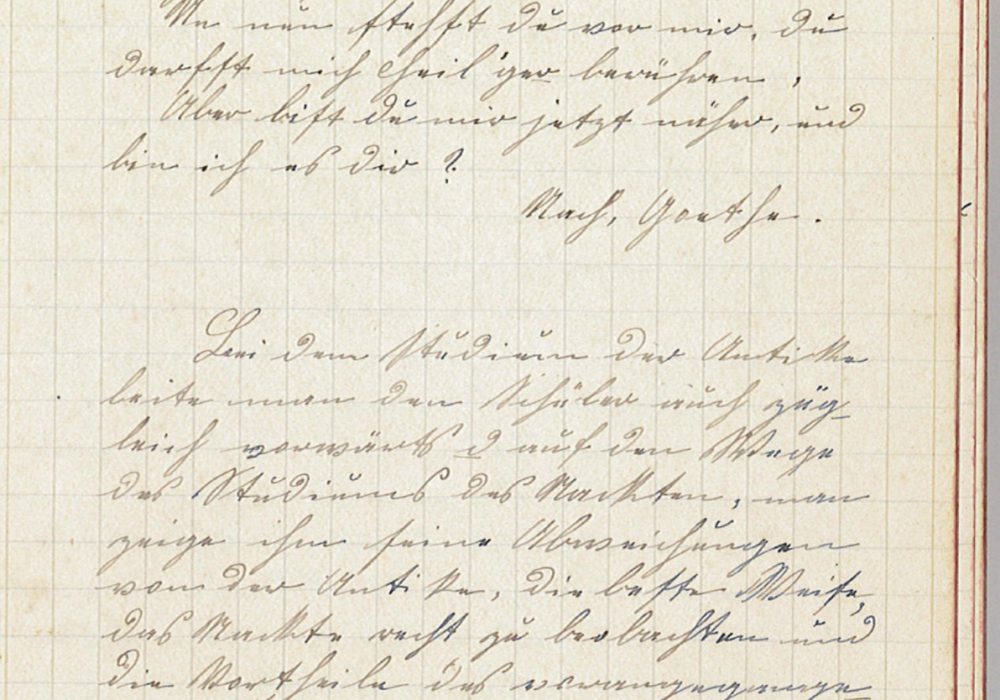 nun stehst du vor mir, du
darfst mich Heil'ger berühren,
Aber bist du mir jetzt näher, und
bin ich es dir?
Nach, Goethe.
Bei dem Studium der Antike
leite man den Schüler auch zug-
leich vorwärts d auf den Wege
des Studiums des Nackten, man
zeige ihm seine Abweichungen
von der Antike, die beste Weise,
das Nackte recht zu beobachten und
die Vortheile des vorangegange